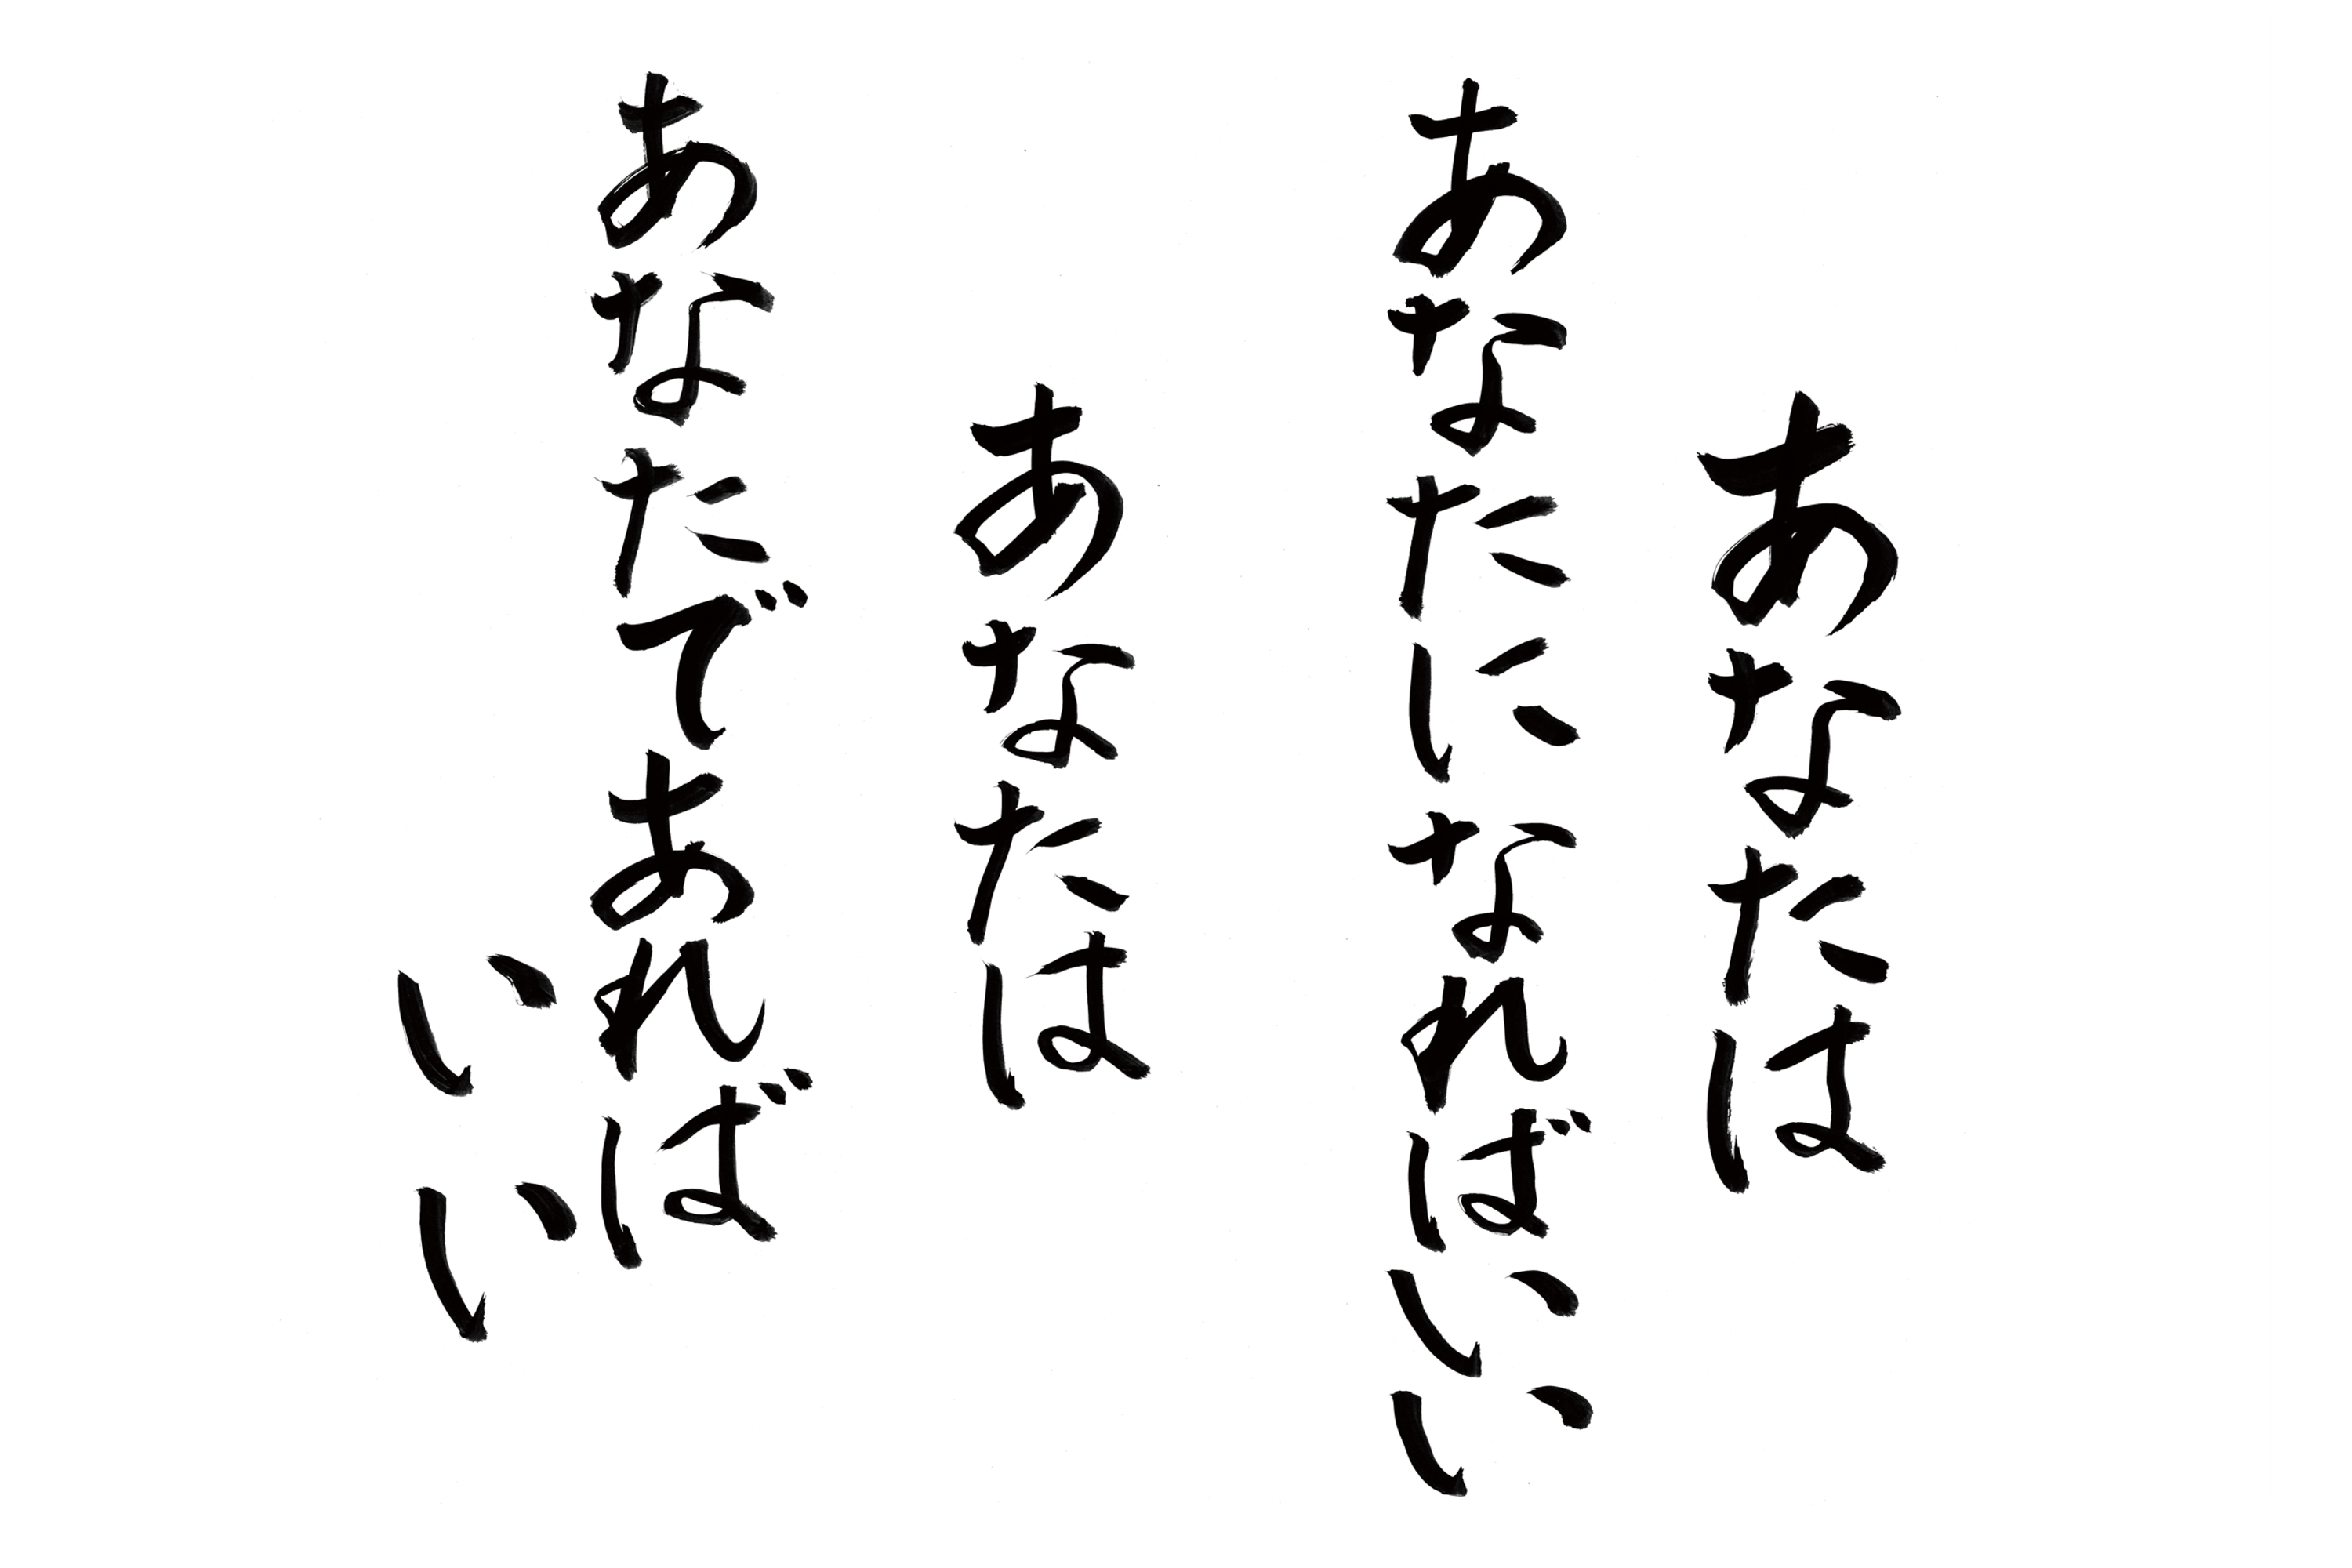 あなたは
あなたになればいい
あなたは
あなたであれば
いい